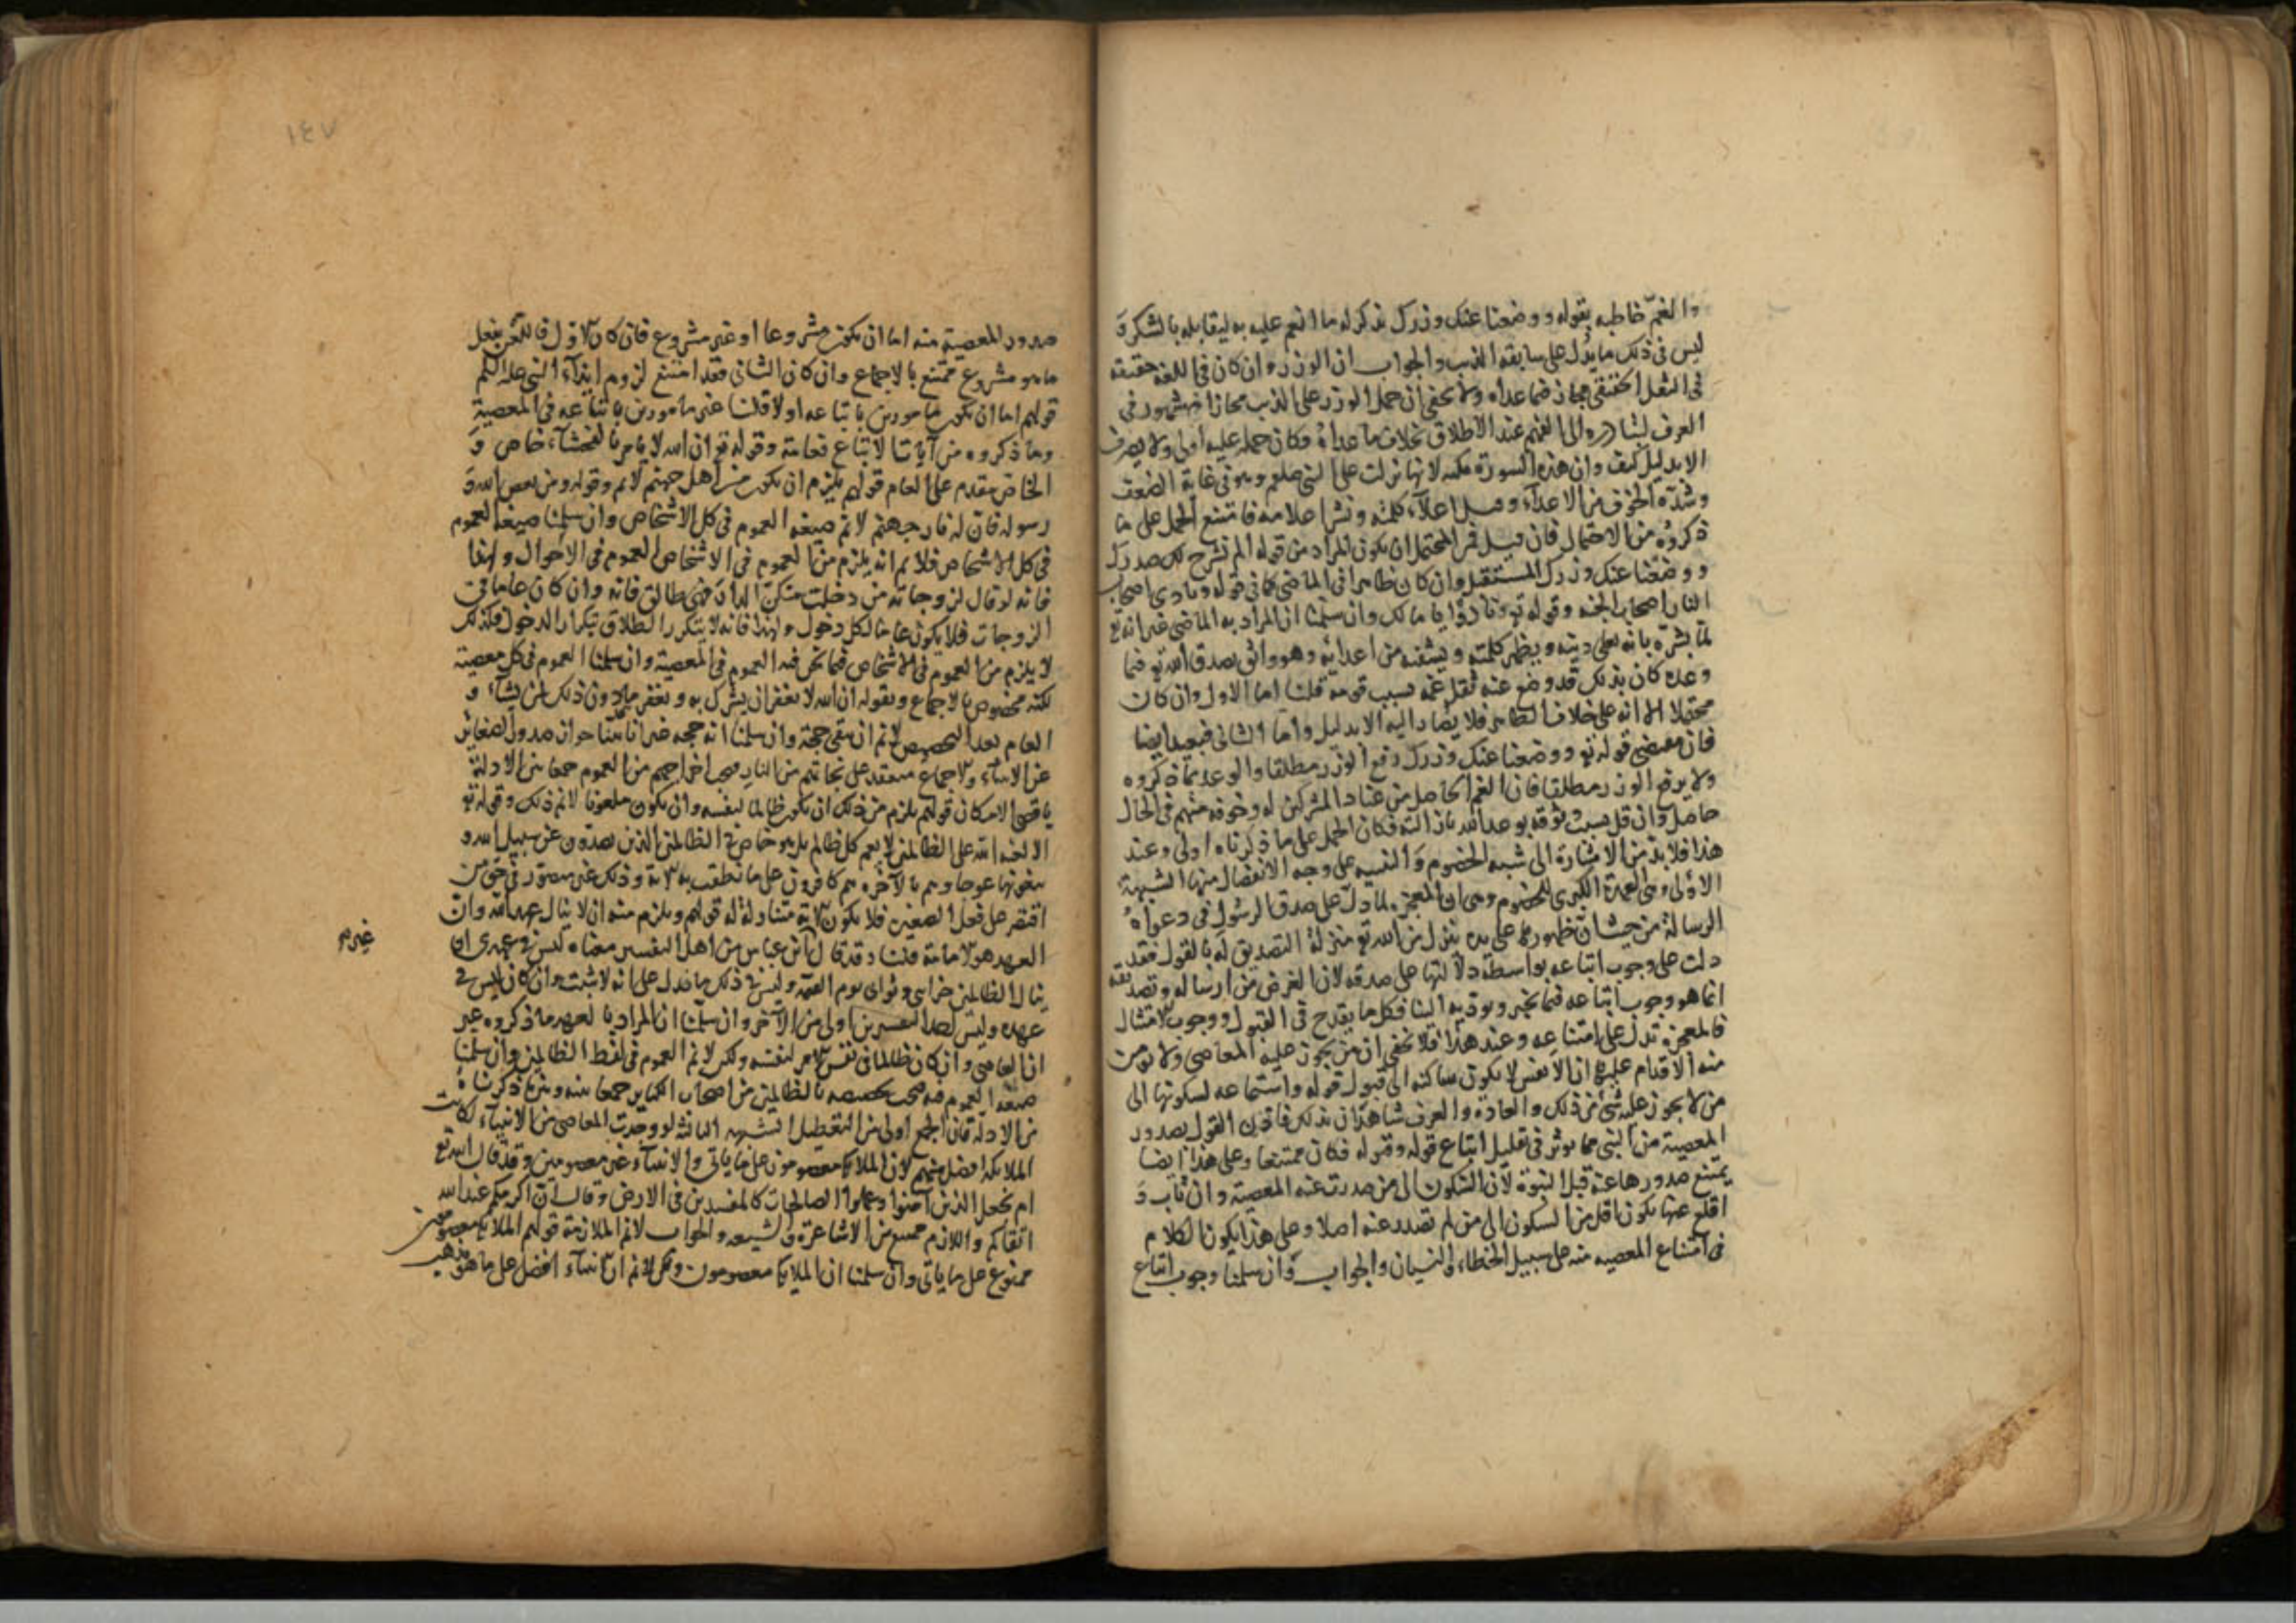 والغمّ خاطبه بقوله ووضعنا عنك وزرك بذكر له ما انعم عليه به ليقابله بالشكر و
ليس فى ذلك ما يدل على سابقه الذنب والجواب ان الوزر وان كان فى اللغه حقيقه
فى الثقل الحقيقى مجاز فيما عداه ولا يخفى ان حمل الوزر على الذنب مجازا مشهور فى
العرف لتبادره الى الفهم عند الاطلاق بخلاف ما عداه فكان حمله عليه اولى ولا يصرف
الا بدليل كيف وان هذه السورة مكيه لانها نزلت على النبى صلعم وهو فى غاية الضعف
وشدّة الخوف من الاعداء وقبل اعلاء كلمته ونشر اعلامه فامتنع الحمل على ما
ذكروه من الاحتمال فان قيل فمن المحتمل ان يكون المراد من قوله الم نشرح لك صدرك
ووضعنا عنك وزرك المستقبل وان كان ظاهرا فى الماضى كما فى قوله ونادى اصحاب
النار اصحاب الجنه وقوله تع ونادوا يا مالك وان سلمنا ان المراد به الماضى غير انه تع
لما بشّره بانه يعلى دينه ويظهر كلمته ويشفيه من اعدائه وهو واثق بصدق الله تع فيما
وعده كان بذلك قد وضع عنه ثقل غمه بسبب قومه قلنا اما الاول وان كان
محتملا الا انه على خلاف الظاهر فلا يصار اليه الا بدليل واما الثانى فبعيد ايضا
فان مقتضى قوله تع ووضعنا عنك وزرك رفع الوزر مطلقا والوعد بما ذكروه
ولا يرفع الوزر مطلقا فان الغم الحاصل من عناد المشركين له وخوفه منهم فى الحال
حاصل وان قل بسبب وثوقه بوعد الله بازالته فكان الحمل على ما ذكرناه اولى وعند
هذا فلا بد من الاشارة الى شبه الخصوم والتنبيه على وجه الانفصال منها الشبهة
الاولى وهى العمدة الكبرى للخصوم وهى ان المعجز لما دلّ على صدق الرسول فى دعواه
الرسالة من حيث ان ظهورها على يده ينزل من الله تع منزلة التصديق له بالقول فقد
دلت على وجوب اتباعه بواسطة دلالتها على صدقه لان الغرض من ارساله وتصديقه
انما هو وجوب اتباعه فيما يخبر ويوديه الينا فكل ما يقدح فى القبول ووجوب الامتثال
فالمعجزة تدل على امتناعه وعند هذا فلا يخفى ان من يجوز عليه المعاصى ولا يومن
منه الاقدام عليها ان الانفس لا يكون ساكنه الى قبول قوله واستماعه لسكونها الى
من لا يجوز عليه شئ من ذلك والعادة والعرف شاهدان بذلك فاذن القول بصدور
المعصية من النبى مما يوثر فى تقليل اتباع قوله وقبوله فكان ممتنعا وعلى هذا ايضا
يمتنع صدورها عنه قبل النبوة لان السكون الى من صدرت عنه المعصية وان تاب و
اقلع عنها يكون اقل من السكون الى من لم تصدر عنه اصلا وعلى هذا يكون الكلام
فى امتناع المعصيه منه على سبيل الخطاء والنسيان والجواب وان سلمنا وجوب اتباع
١٤٧
صدور المعصية منه اما ان يكون مشروعا او غير مشروع فان كان الاول فالتعزير بفعل
ما هو مشروع ممتنع بالاجماع وان كان الثانى فقد امتنع لزوم ايذاء النبى صلعم
قولهم اما ان نكون مامورين باتباعه او لا قلنا غير مامورين باتباعه فى المعصية
وما ذكروه من آيات الاتباع فعامة وقوله تع ان الله لا يامر بالفحشاء خاص و
الخاص مقدم على العام قولهم يلزم ان يكون من اهل جهنم لا نم وقوله ومن يعص الله و
رسوله فان له نار جهنم لا نم صيغه العموم فى كل الاشخاص وان سلمنا صيغه العموم
فى كل الاشخاص فلا نم انه يلزم من العموم فى الاشخاص العموم فى الاحوال ولهذا
فانه لو قال لزوجاته من دخلت منكن الدار فهى طالق فانه وان كان عاما فى
الزوجات فلا يكون عاما لكل دخول ولهذا فانه لا يتكرر الطلاق بتكرار الدخول فكذلك
لا يلزم من العموم فى الاشخاص فيما نحن فيه العموم فى المعصية وان سلمنا العموم فى كل معصية
لكنه مخصوص بالاجماع وبقوله ان الله لا يغفر ان يشرك به ويغفر ما دون ذلك لمن يشاء و
العام بعد التخصيص لا نم ان يبقى حجة وان سلمنا انه حجه غير انا بينا جواز صدور الصغائر
عن الانبياء والاجماع منعقد على نجاتهم من النار فيجب اخراجهم من العموم جمعا بين الادلة
باقصى الامكان قولهم يلزم من ذلك ان يكون ظالما لنفسه وان يكون ملعونا لا نم ذلك وقوله تع
الا لعنه الله على الظالمين لا يعم كل ظالم بل هو خاص فى الظالمين الذين يصدون عن سبيل الله و
يبغونها عوجا وهم بالآخره هم كافرون على ما نطقت به الآية وذلك غير متصور فى حق من
اقتصر على فعل الصغيره فلا يكون الآية متناولة له قولهم ويلزم منه ان لا ينال عهد الله وان
العهد هو الامامة قلنا وقد قال ابن عباس من اهل التفسير معناه ليس فى عهدى ان
غيره
ينال الظالمين جزائى وثوابى يوم القيمة وليس فى ذلك ما يدل على انه لا يثبت وان كان ليس فى
عهده وليس احد التفسيرين اولى من الآخر وان سلمنا ان المراد بالعهد ما ذكروه غير
ان العاصى وان كان ظالما فى نفس الامر لنفسه ولكن لا نم العموم فى لفظ الظالمين وان سلمنا
صيغه العموم فيه فيجب تخصيصه بالظالمين من اصحاب الكباير جمعا بينه وبين ما ذكرناه
من الادلة فان الجمع اولى من التعطيل الشبهه الثانيه لو وجدت المعاصى من الانبياء لكانت
الملايكه افضل منهم لان الملايكه معصومون على ما ياتى والانبياء غير معصومين وقد قال الله تع
ام نجعل الذين آمنوا وعملوا الصالحات كالمفسدين فى الارض وقال ان اكرمكم عند الله
اتقاكم واللازم ممتنع من الاشاعرة والشيعه والجواب لا نم الملازمة قولهم الملايكه معصومين
ممنوع على ما ياتى وان سلمنا ان الملايكه معصومون ولكن لا نم ان الانبياء افضل على ما هو مذهب